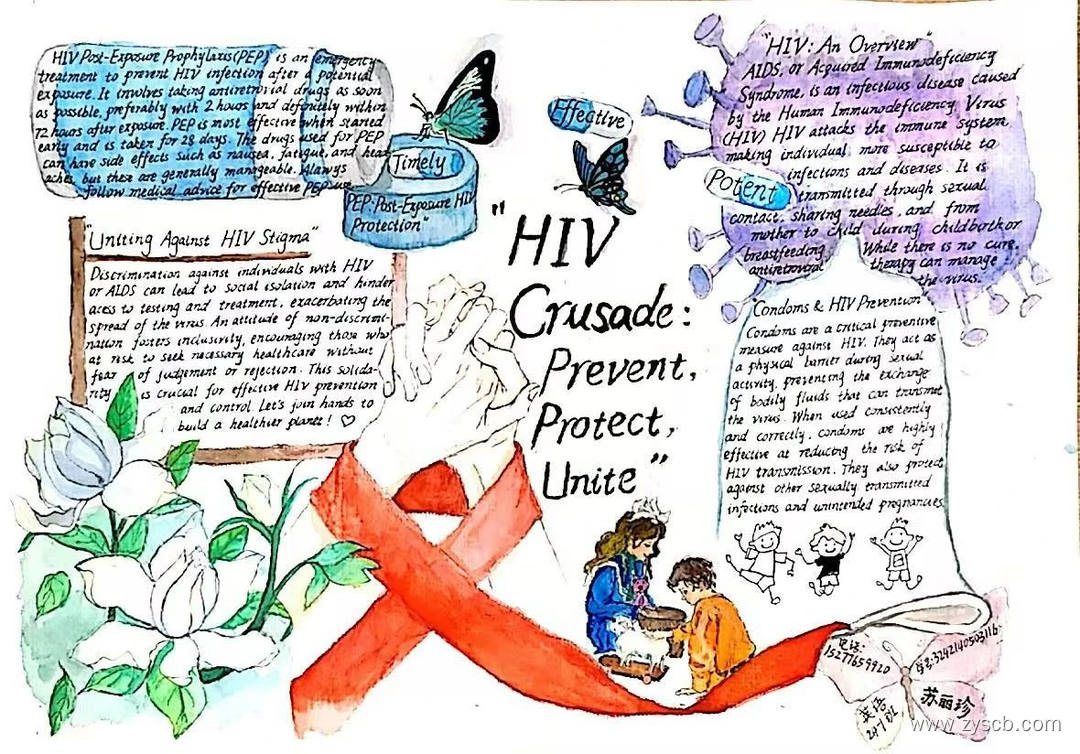 HIV Post-Exposure Prophylaxis(PEP) is an emergency
treatment to prevent HIV infection after a potential
exposure. It involves taking antiretroviral drugs as soon
as possible, preferably with 2 hours and definitely within
72 hours after exposure. PEP is most effective when started
early and is taken for 28 days. The drugs used for PEP
can have side effects such as nausea, fatigue, and head
aches, but these are generally manageable. Always
follow medical advice for effective PEP use.
Timely
PEP: Post-Exposure HIV
Protection"
Effective
Potent
"HIV: An Overview"
AIDS, or Acquired Immunodeficiency
Syndrome, is an infectious disease caused
by the Human Immunodeficiency Virus
(HIV) HIV attacks the immune system,
making individual more susceptible to
infections and diseases. It is
transmitted through sexual
contact, sharing needles, and from
mother to child during childbirth or
breastfeeding While there is no cure,
antiretroviral therapy can manage
the virus.
"Uniting Against HIV Stigma"
Discrimination against individuals with HIV
or AIDS can lead to social isolation and hinder
acess to testing and treatment, exacerbating the
spread of the virus. An attitude of non-discrimi-
nation fosters inclusivity, encouraging those who
at risk to seek necessary healthcare without
fear of judgement or rejection. This solida-
rity is crucial for effective HIV prevention
and control. Let's join hands to
build a healthier planet! ♡
"HIV
Crusade:
Prevent,
Protect,
Unite"
"Condoms & HIV Prevention"
Condoms are a critical preventive
measure against HIV. They act as
a physical barrier during sexual
activity, preventing the exchange
of bodily fluids that can transmit
the virus. When used consistently
and correctly, condoms are highly
effective at reducing the risk of
HIV transmission. They also protect
against other sexually transmitted
infections and unintended pregnancies.
电话:
15277659920
学号:
苏丽珍
英语
www.zyscb.com